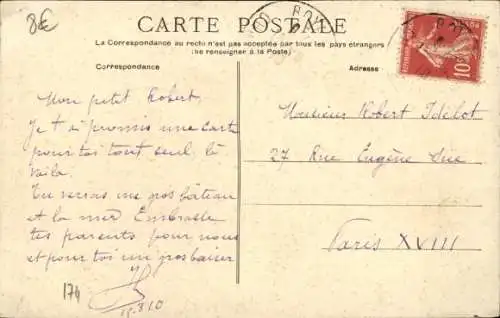 8€
CARTE POSTALE
La Correspondance au recto n'est pas acceptée par tous les pays étrangers
(Se renseigner à la Poste)
Correspondance
Adresse
10
Mon petit Robert,
Je t'ai promis une carte
pour toi tout seul la
voila.
Tu verras un gros bâteau
et la mer Embrasse
tes parents pour nous
et pour toi un gros baiser
Monsieur Robert Idelot
27 Rue Eugène Sue
Paris XVIII
174